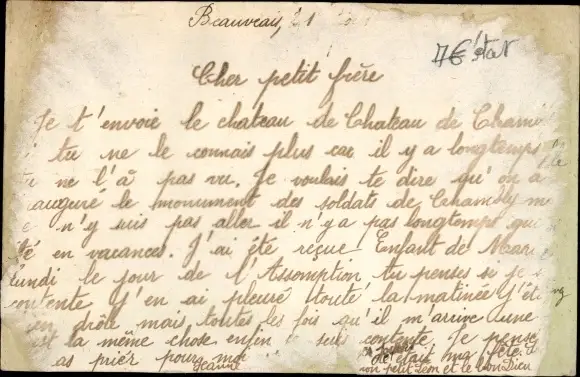 Beauvais, 21
7€ état
Cher petit frère
Je t'envoie le chateau de Chateau de Cham
tu ne le connais plus car il y a longtemps
ne l'à pas vu. Je voulais te dire qu'on a
auguré le monument des soldats de Chambly m
n'y suis pas aller il n'y a pas longtemps qu
été en vacances. J'ai été reçue Enfant de Mar
lundi le jour de l'Assomption tu penses si je
contente J'en ai pleuré toute la matinée J'ét
en drôle mais toutes les fois qu'il m'arrive une
la même chose enfin suis contente Je pense
as prier pour mo
Jeanne
petit Léon et le Bon Dieu